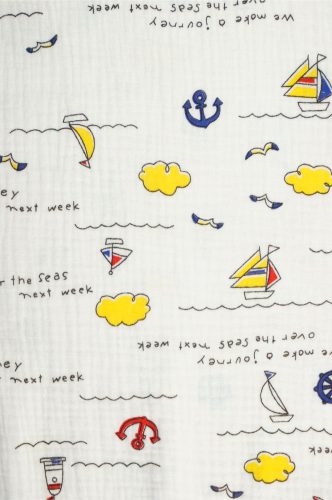 We make a journey
over the seas next week
ey
next week
r the seas
next week
We make a journey
over the seas next week
ey
next week
eek